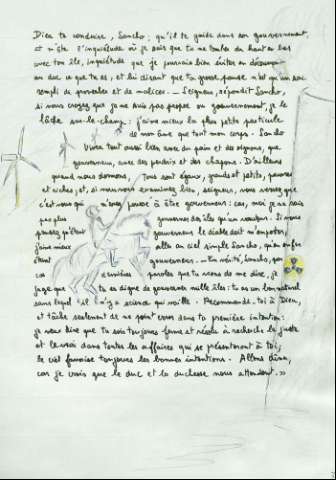 Dieu te conduise, Sancho; qu'il te guide dans ton gouvernement,
et m'ôte l'inquiétude où je suis que tu ne tombes du haut en bas
avec ton île, inquiétude que je pourrais bien éviter en découvrant
au duc ce que tu es, et lui disant que ta grosse panse n'est qu'un sac
rempli de proverbes et de malices. — Seigneur, répondit Sancho,
si vous croyez que je ne suis pas propre au gouvernement, je le
lâche sur-le-champ: j'aime mieux la plus petite particule
de mon âme que tout mon corps. Sancho
vivra tout aussi bien avec du pain et des oignons, que
gouverneur, avec des perdrix et des chapons. D'ailleurs
quand nous dormons, tous sont égaux, grands et petits, pauvres
et riches; et, si vous vous examinez bien, seigneur, vous verrez que
c'est vous qui m'avez poussé à être gouverneur: car, moi je ne sais
pas plus gouverner des îles qu'un vautour. Si vous
pensez qu'étant gouverneur le diable doit m'emporter,
j'aime mieux aller au ciel simple Sancho, qu'en enfer
étant gouverneur. — En vérité, Sancho, pour
ces dernières paroles que tu viens de me dire, je
juge que tu es digne de gouverner mille îles: tu as un bon naturel
sans lequel il n'y a science qui vaille. Recommande-toi à Dieu,
et tâche seulement de ne point errer dans ta première intention:
je veux dire que tu sois toujours ferme et résolu à rechercher le juste
et le vrai dans toutes les affaires qui se présenteront à toi;
le ciel favorise toujours les bonnes intentions. Allons dîner,
car je crois que le duc et la duchesse nous attendent. »